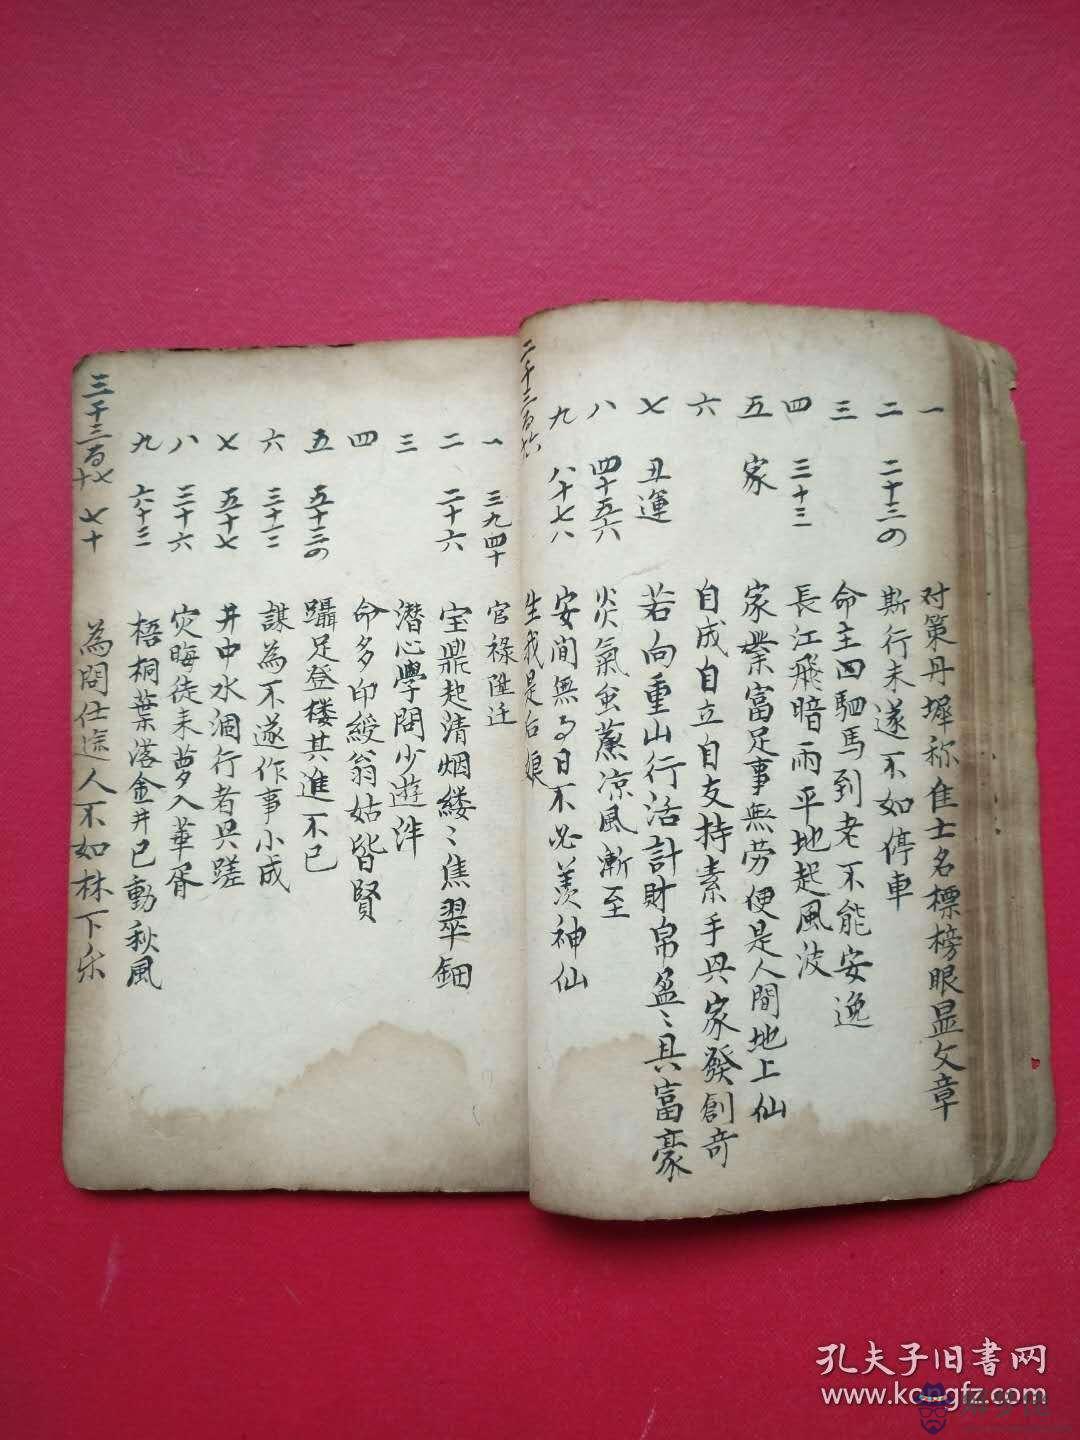 一 对策丹墀称佳士名標榜眼显文章
二 二十三四 斯行未遂不如停車
三 命主四駟馬到老不能安逸
四 三十三 長江飛暗雨平地起風波
五 家 家業富足事無劳便是人間地上仙
六 自成自立自支持素手興家發創奇
七 丑運 若向重山行活計財帛盈〻具富豪
八 四十五六 炎氣虫薰凉風漸至
九 八十七八 安间無日不必羡神仙
生我是后娘
一 三九四十 官禄陞迁
二 二十六 宝鼎起清烟縷〻焦翠鈿
三 潜心學問少遊泮
四 命多印綬翁姑皆賢
五 五十三四 躡足登楼其進不已
六 三十二 謀為不遂作事小成
七 五十七 井中水涸行者興蹉
八 三十六 灾晦徒来夢入華胥
九 六十三 梧桐葉落金井已動秋風
七十 為問仕途人不如林下乐
三千三百七十
孔夫子旧書网
www.kongfz.com